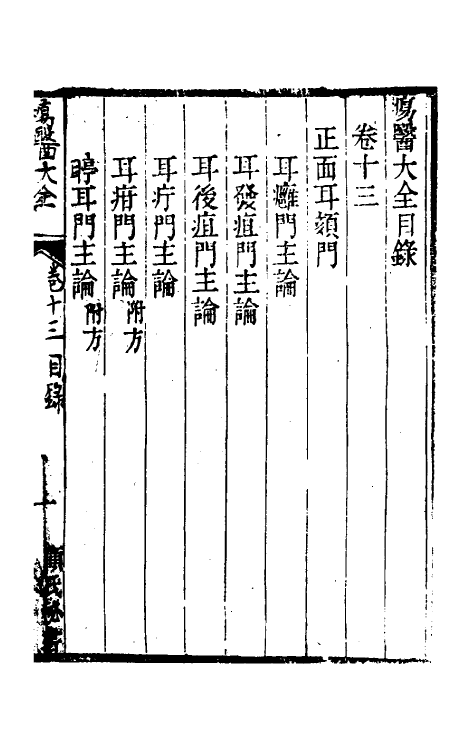 瘍醫大全目錄
卷十三
正面耳頦門
耳癰門主論
耳發疽門主論
耳後疽門主論
耳疔門主論
耳疳門主論 附方
聤耳門主論 附方
瘍醫大全 卷十三目錄 一 顧氏秘書